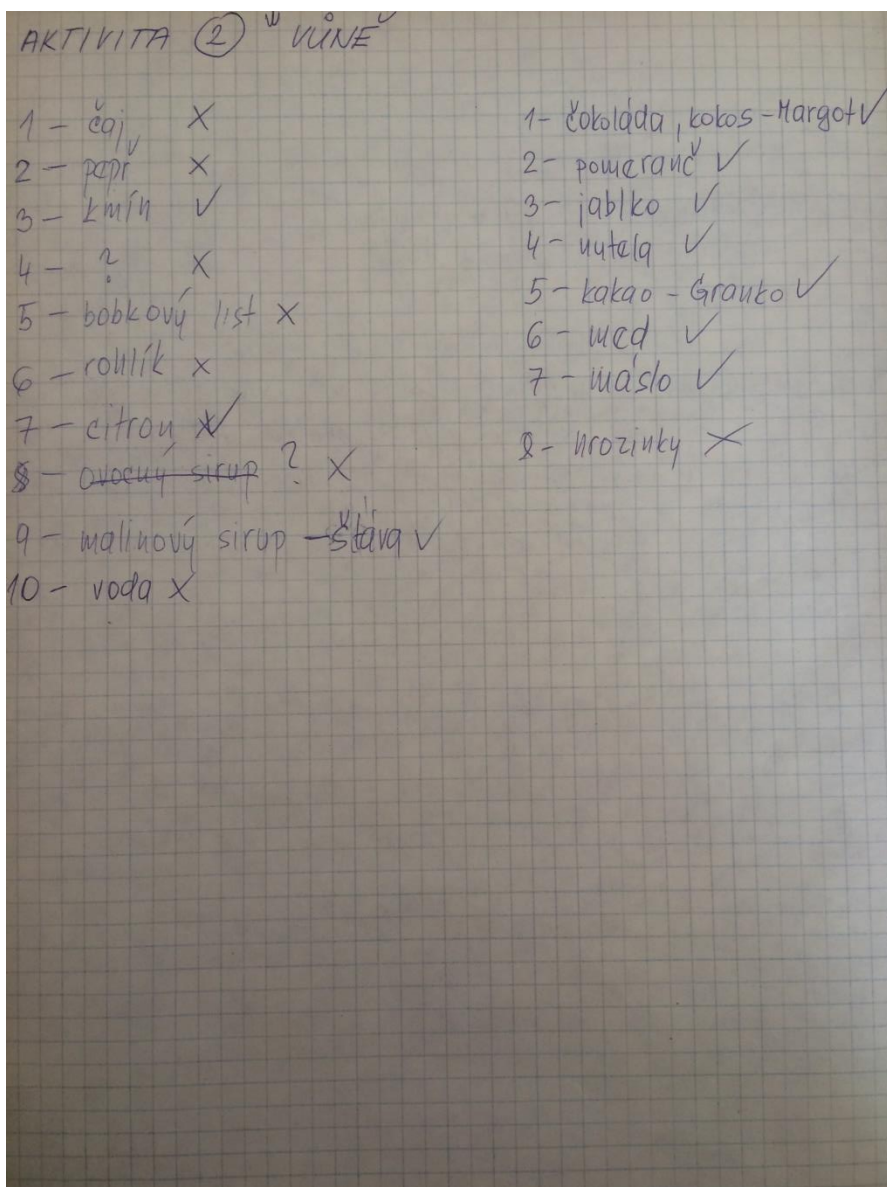 AKTIVITA 2 VŮNĚ
1 - čaj X
2 - pepř X
3 - kmín ✓
4 - ? X
5 - bobkový list X
6 - rohlík X
7 - citron ✓
8 - ovocný sirup ? X
9 - malinový sirup - šťáva ✓
10 - voda X
1 - čokoláda, kokos - Margot ✓
2 - pomeranč ✓
3 - jablko ✓
4 - nutela ✓
5 - kakao - Granko ✓
6 - med ✓
7 - máslo ✓
8 - hrozinky X